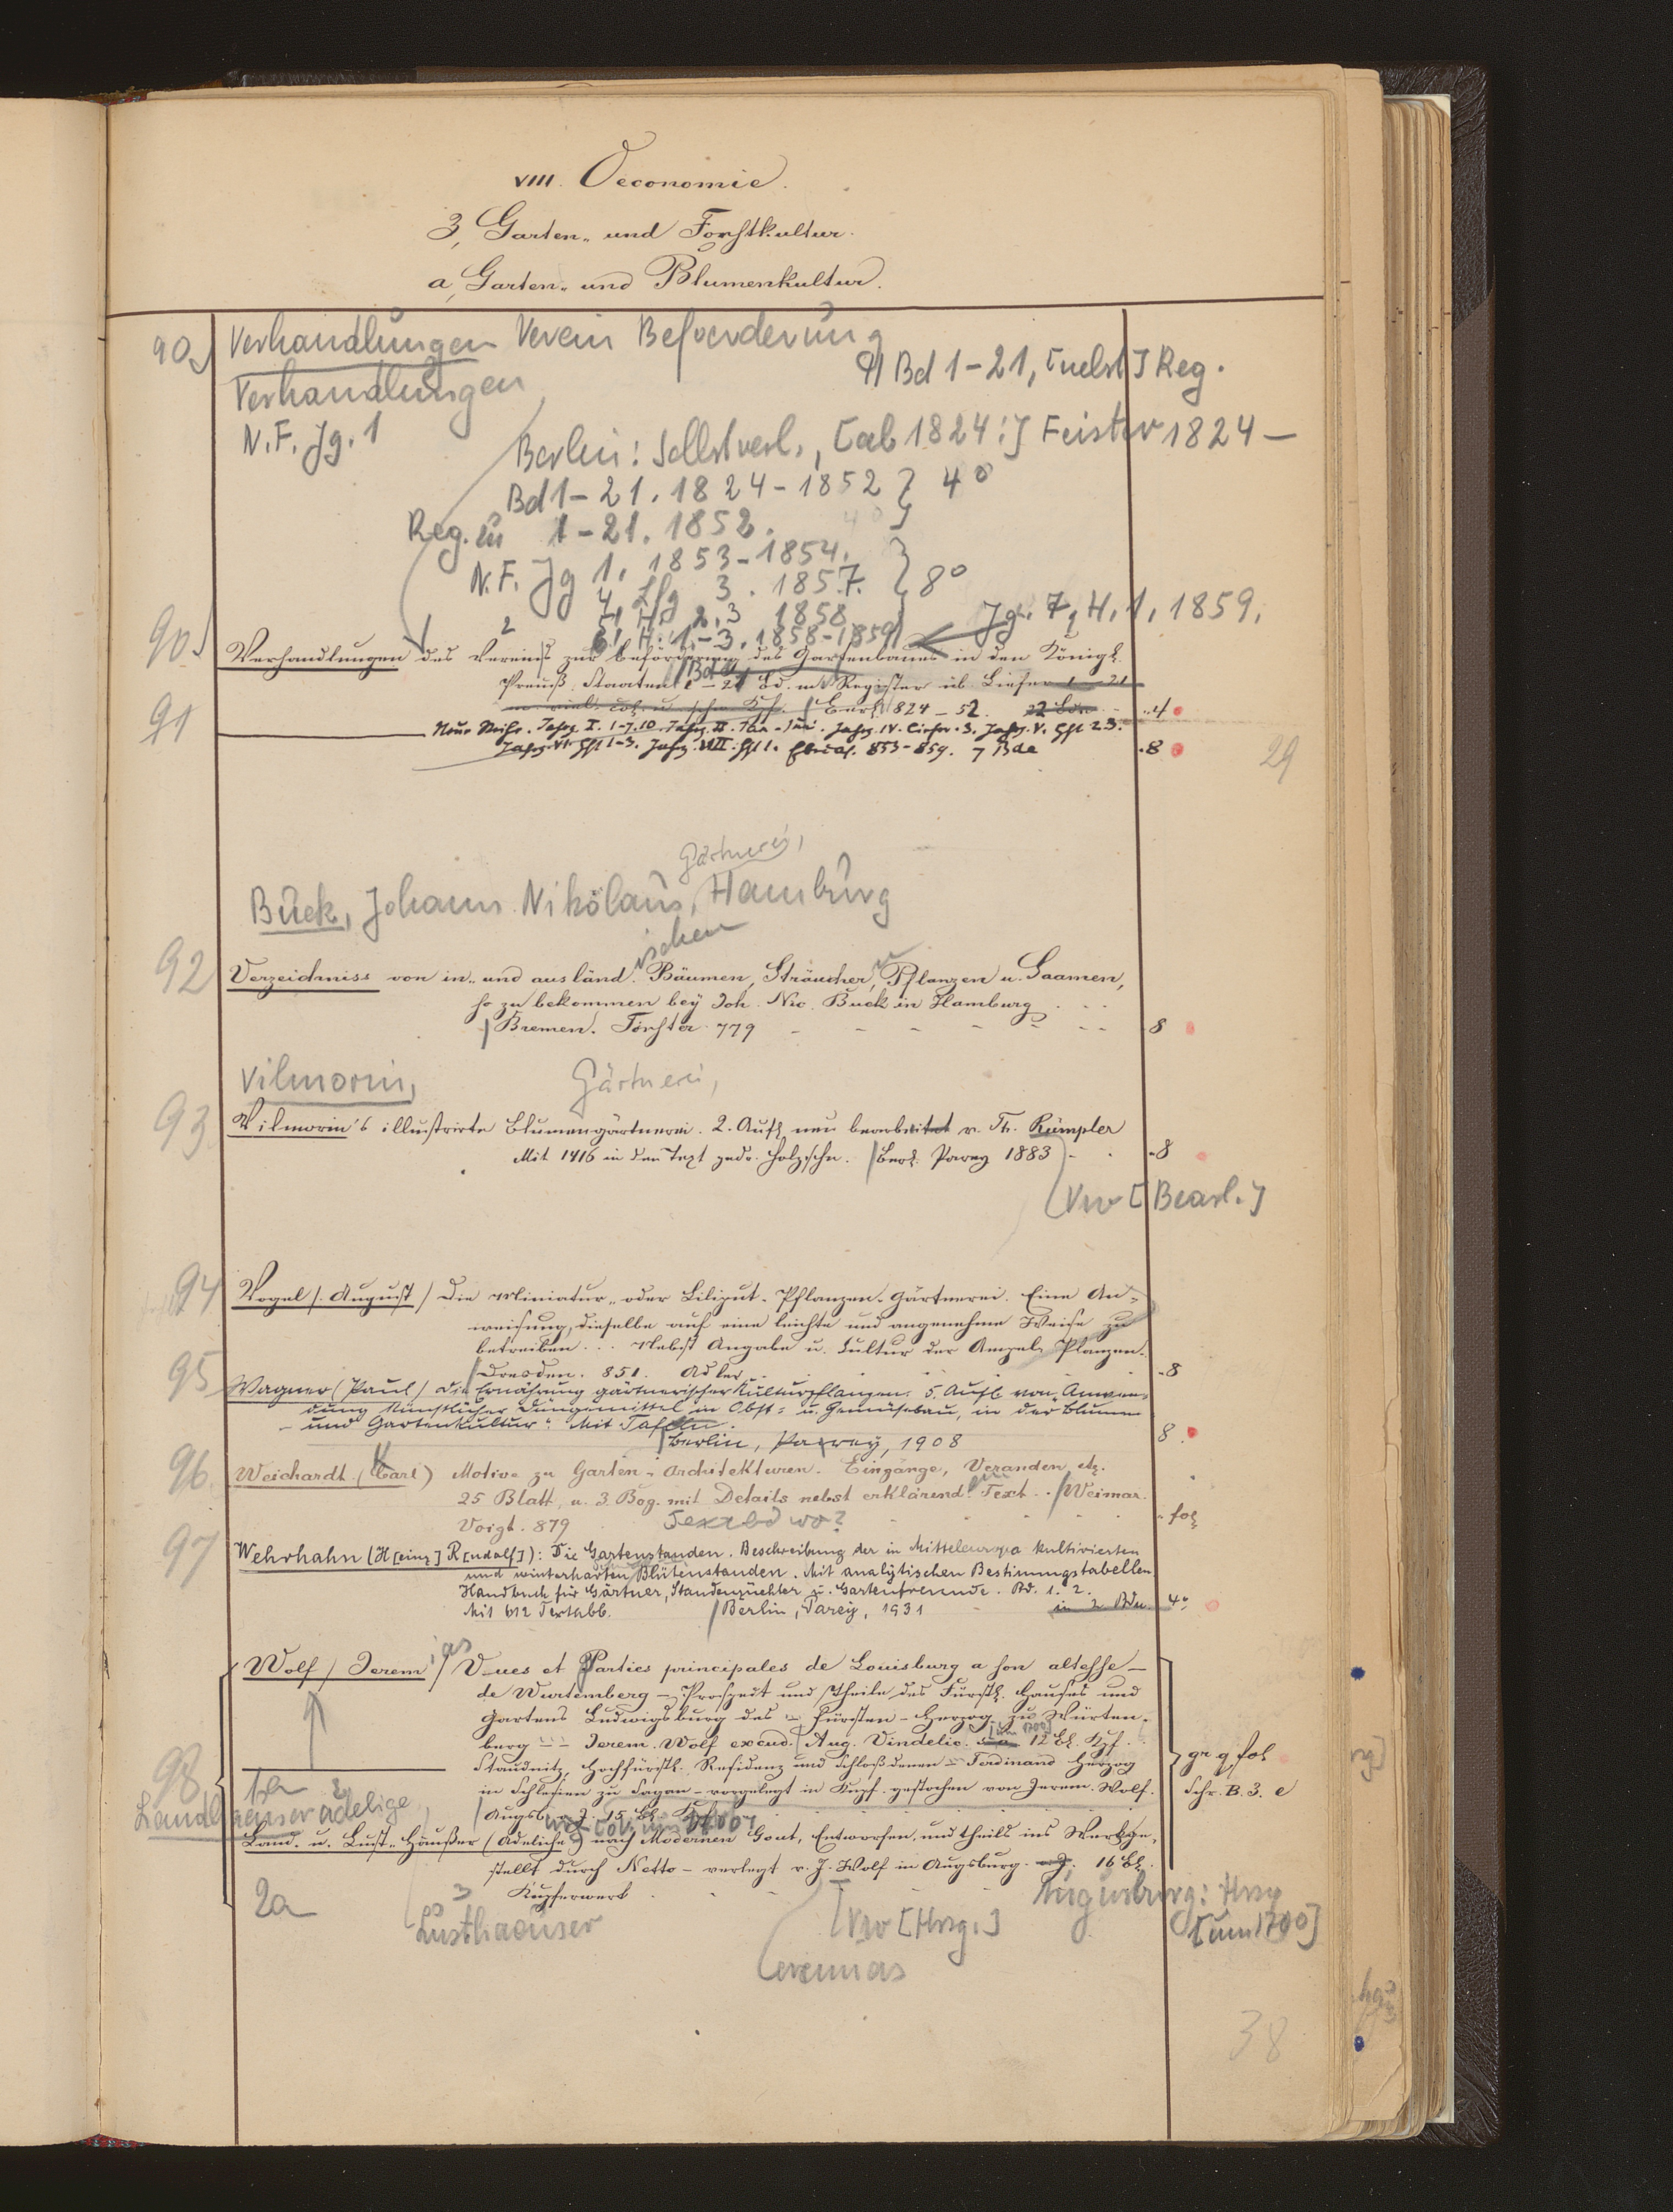 VIII. Oeconomie.
3, Garten- und Forstkultur.
a, Garten- und Blumenkultur.
90) Verhandlungen Verein Befoerderung
4) Bd 1-21, [nebst] Reg.
Verhandlungen
N.F. Jg. 1
Berlin: Selbstverl., [ab 1824:] Feister 1824 -
Bd 1-21. 1824-1852 } 4°
Reg. zu 1-21. 1852. 4°
N.F. Jg 1. 1853-1854.
4, Lfg 3. 1857. } 8°
5, H. 2.3 1858
6, H. 1.-3. 1858-1859 Jg. 7, H. 1, 1859.
90) Verhandlungen des Vereins zur Beförderung des Gartenbaues in den Königl.
Preuß. Staaten 1-21 Bd. mit Register üb. Liefer 1-21
Berl. 824-52. 22 Bde .4
91 Neue Reihe. Jahrg. I. 1-7. 10. Jahrg. II. Jan-Juni. Jahrg. IV. Liefer. 3. Jahrg. V. Hft 2.3.
Jahrg. VI. Hft 1-3. Jahrg. VII. Hft 1. Ebendas. 853-859. 7 Bde .8
29
Gärtnerei,
Buck, Johann Nikolaus, Hamburg
ischen
92 Verzeichniss von in- und ausländ. Bäumen, Sträucher, Pflanzen u. Saamen,
so zu bekommen bey Joh. Nic. Buck in Hamburg
Bremen. Förster 779 8
Vilmorin, Gärtnerei,
93 Vilmorin's illustrirte Blumengärtnerei. 2. Aufl. neu bearbeitet v. Th. Rümpler
Mit 1416 in den Text gedr. Holzschn. Berl. Parey 1883 .8
Vw [Bearb.]
94 Vogel / August / Die Miniatur- oder Liliput-Pflanzen-Gärtnerei. Eine An-
weisung, dieselbe auf eine leichte und angenehme Weise zu
betreiben... Nebst Angabe u. Cultur der Ampel-Planzen.
Dresden. 851. Adler .8
95 Wagner (Paul) Die Ernährung gärtnerischer Kulturpflanzen. 5. Aufl. von „Anwen-
dung künstlicher Düngemittel in Obst- u. Gemüsebau, in der Blumen
- und Gartenkultur". Mit Tafeln.
Berlin, Parey, 1908 8.
96. Weichardt (Carl) Motive zu Garten-Architekturen. Eingänge, Veranden etc.
25 Blatt, u. 3 Bog. mit Details nebst erklärend. Text. Weimar.
Voigt. 879 Textbd wo? fol
97 Wehrhahn (H[einz] R[udolf]): Die Gartenstauden. Beschreibung der in Mitteleuropa kultivierten
und winterharten Blütenstauden. Mit analytischen Bestimmungstabellen
Handbuch für Gärtner, Staudenzüchter u. Gartenfreunde. Bd. 1. 2.
Mit 612 Textabb. Berlin, Parey, 1931 in 2 Bdn 4°
ias
Wolf / Jerem / Vues et Parties principales de Louisburg a son altesse -
de Wurtemberg - Prospect und Theile des Fürstl. Hauses und
Gartens Ludwigsburg des - Fürsten - Herzog zu Würten-
[um 1700]
berg - Jerem. Wolf excud. Aug. Vindelic. s. a. 12 Bl. Kpf.
98 Staudnitz, Hochfürstl. Residenz und Schloß denen - Ferdinand Herzog gr q fol
in Schlesien zu Sagan - vorgelegt in Kupf. gestochen von Jerem. Wolf. Schr. B. 3. e
1a 2
Augsb. o. J. 15 Bl. Kpf
Landhaeuser adelige
Land- u. Lust-Häußer (Adeliche) nach Modernen Gout, Entworfen, und theils ins Werk ge-
stellt durch Netto - verlegt v. J. Wolf in Augsburg. o. J. 16 Bl.
Kupferwerk
2a 3 Lusthaeuser
Vw [Hrsg.]
Augsburg: Hrsg
[um 1700]
Jeremias
38